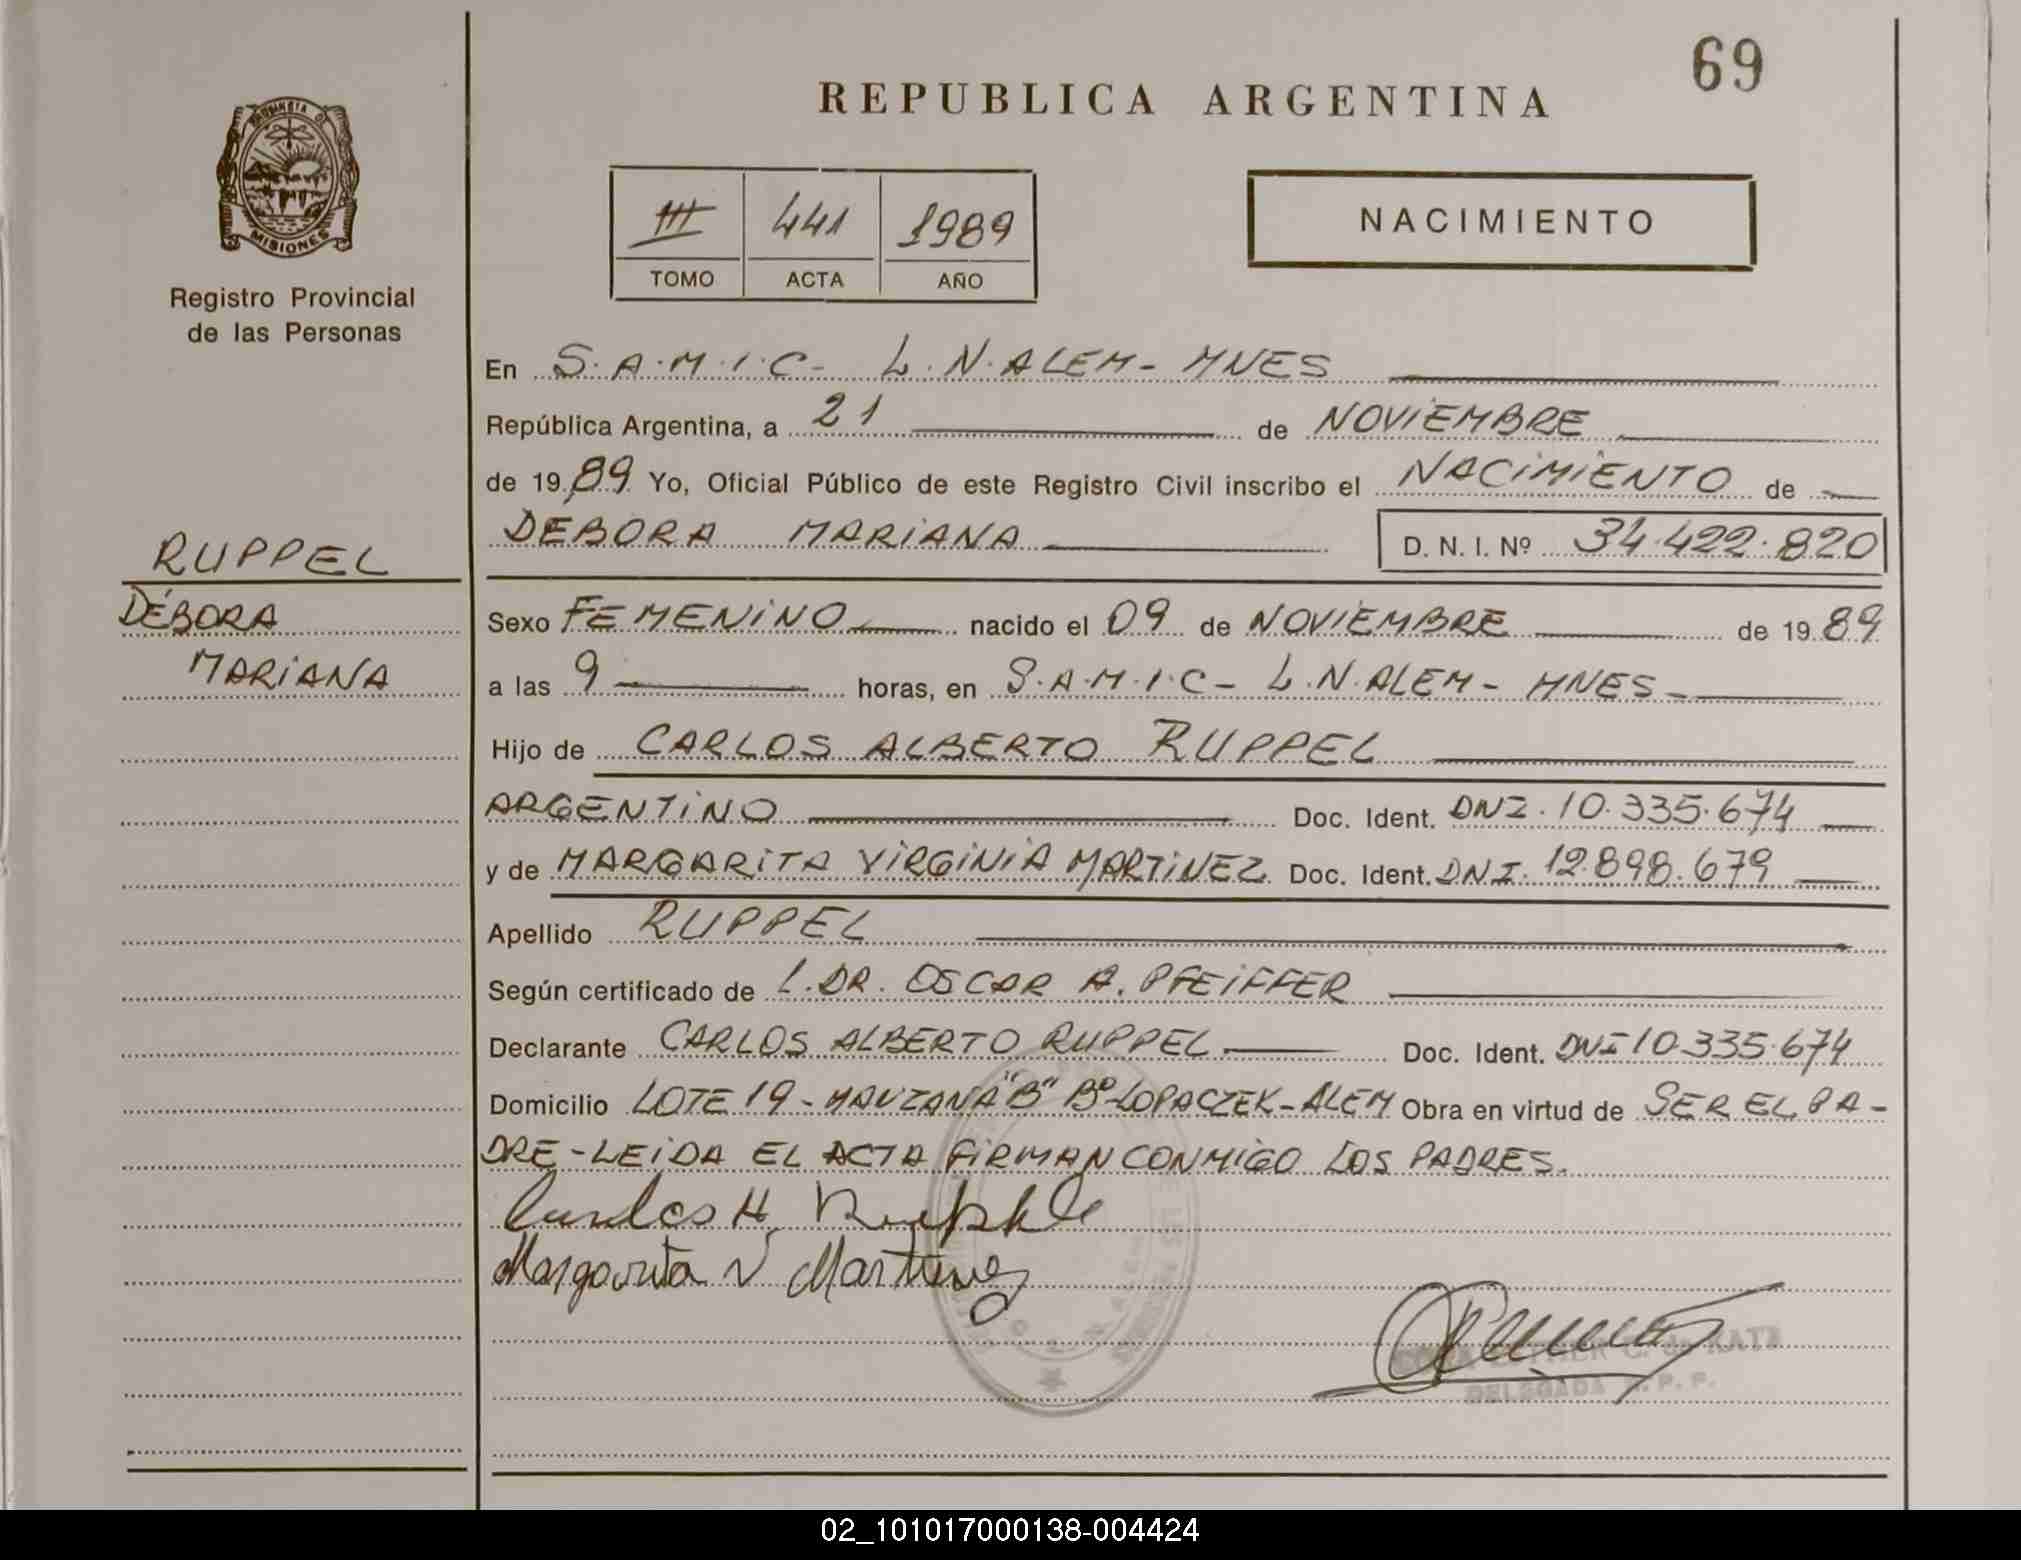 69
REPUBLICA ARGENTINA
PROVINCIA DE
MISIONES
Registro Provincial
de las Personas
III 441 1989
TOMO ACTA AÑO
NACIMIENTO
En S.A.M.I.C- L.N.ALEM- MNES
República Argentina, a 21 de NOVIEMBRE
de 1989 Yo, Oficial Público de este Registro Civil inscribo el NACIMIENTO de
DÉBORA MARIANA D. N. I. Nº 34.422.820
RUPPEL
DÉBORA
MARIANA
Sexo FEMENINO nacido el 09 de NOVIEMBRE de 1989
a las 9 horas, en S.A.M.I.C- L.N.ALEM- MNES-
Hijo de CARLOS ALBERTO RUPPEL
ARGENTINO Doc. Ident. DNI. 10.335.674
y de MARGARITA VIRGINIA MARTINEZ Doc. Ident. DNI. 12.898.679
Apellido RUPPEL
Según certificado de L. DR. OSCAR A. PFEIFFER
Declarante CARLOS ALBERTO RUPPEL Doc. Ident. DNI 10.335.674
Domicilio LOTE 19 - MANZANA "B" Bº LOPACZEK - ALEM Obra en virtud de SER EL PA-
DRE - LEIDA EL ACTA FIRMAN CONMIGO LOS PADRES.
Margarita V Martinez
DELEGADA R.P.P.
02_101017000138-004424